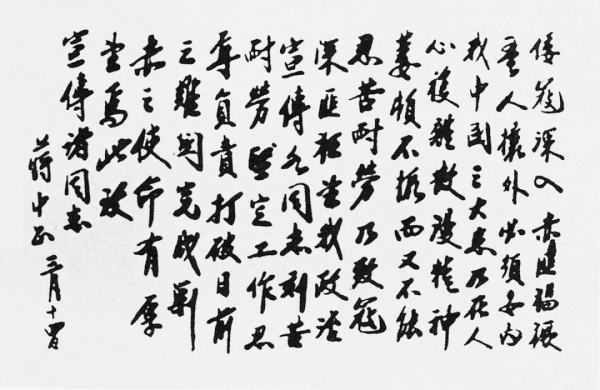 倭寇深入赤匪猖獗
吾人攘外必須安內
我中國之大患乃在人
心複雜散漫精神
萎頓不振而又不能
忍苦耐勞乃致寇
深匪猖坐我政治
宣傳各同志刻苦
耐勞堅定工作忍
辱負責打破目前
之難関完成剿
赤之使命有厚
望焉此致
宣傳諸同志
蔣中正 三月十四日